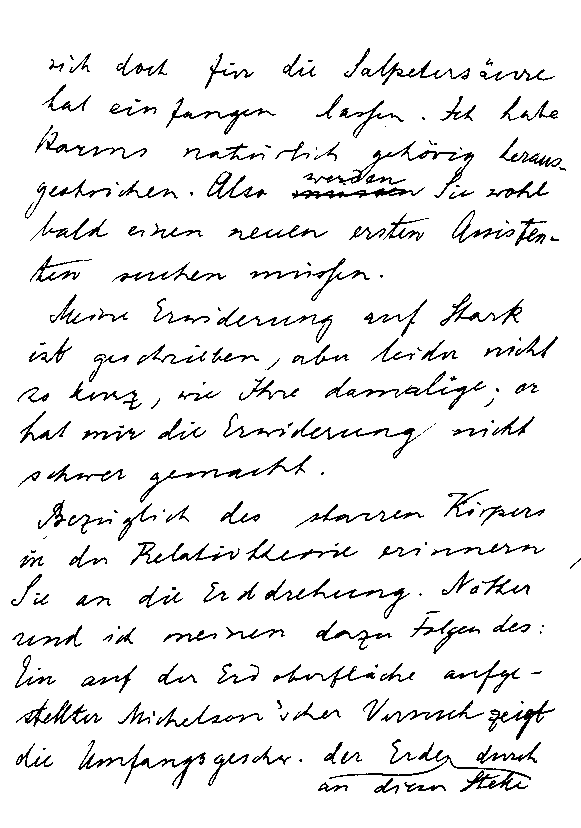 sich doch für die Salpetersäure
hat einfangen lassen. Ich habe
Karms natürlich gehörig heraus-
gestrichen. Also werden müssen Sie wohl
bald einen neuen ersten Assisten-
ten suchen müssen.
Meine Erwiderung auf Stark
ist geschrieben, aber leider nicht
so kurz, wie Ihre damalige; er
hat mir die Erwiderung nicht
schwer gemacht.
Bezüglich des starren Körpers
in der Relativtheorie erinnern
Sie an die Erddrehung. Nöther
und ich meinen dazu Folgendes:
Ein auf der Erdoberfläche aufge-
stellter Michelson'scher Versuch zeigt
die Umfangsgeschw. der Erde, durch
an dieser Stelle